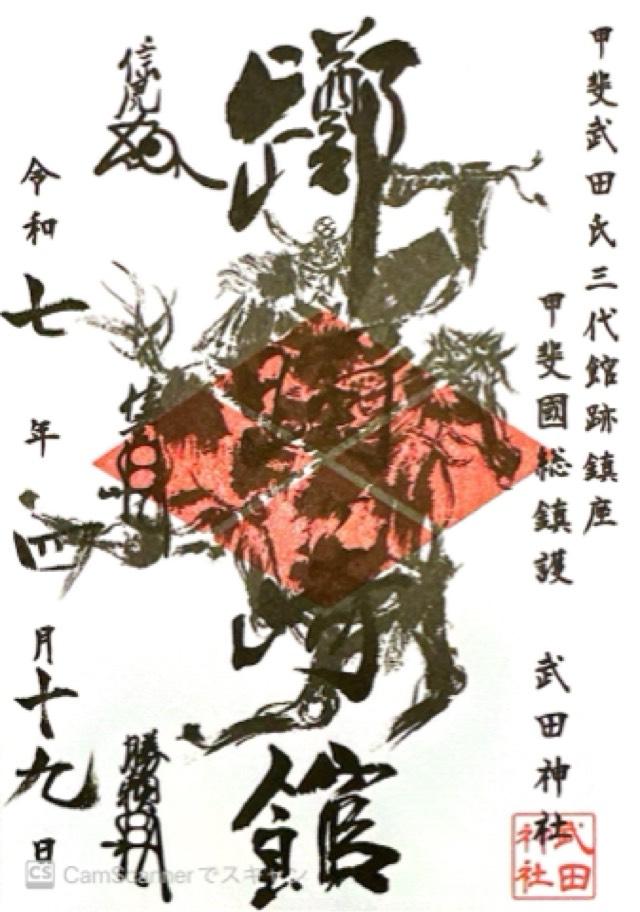 甲斐武田氏三代館跡鎮座
甲斐國総鎮護 武田神社
武田
神社
躑躅ヶ崎
館
信虎
信玄
勝頼
令和七年四月十九日
CS CamScannerでスキャン